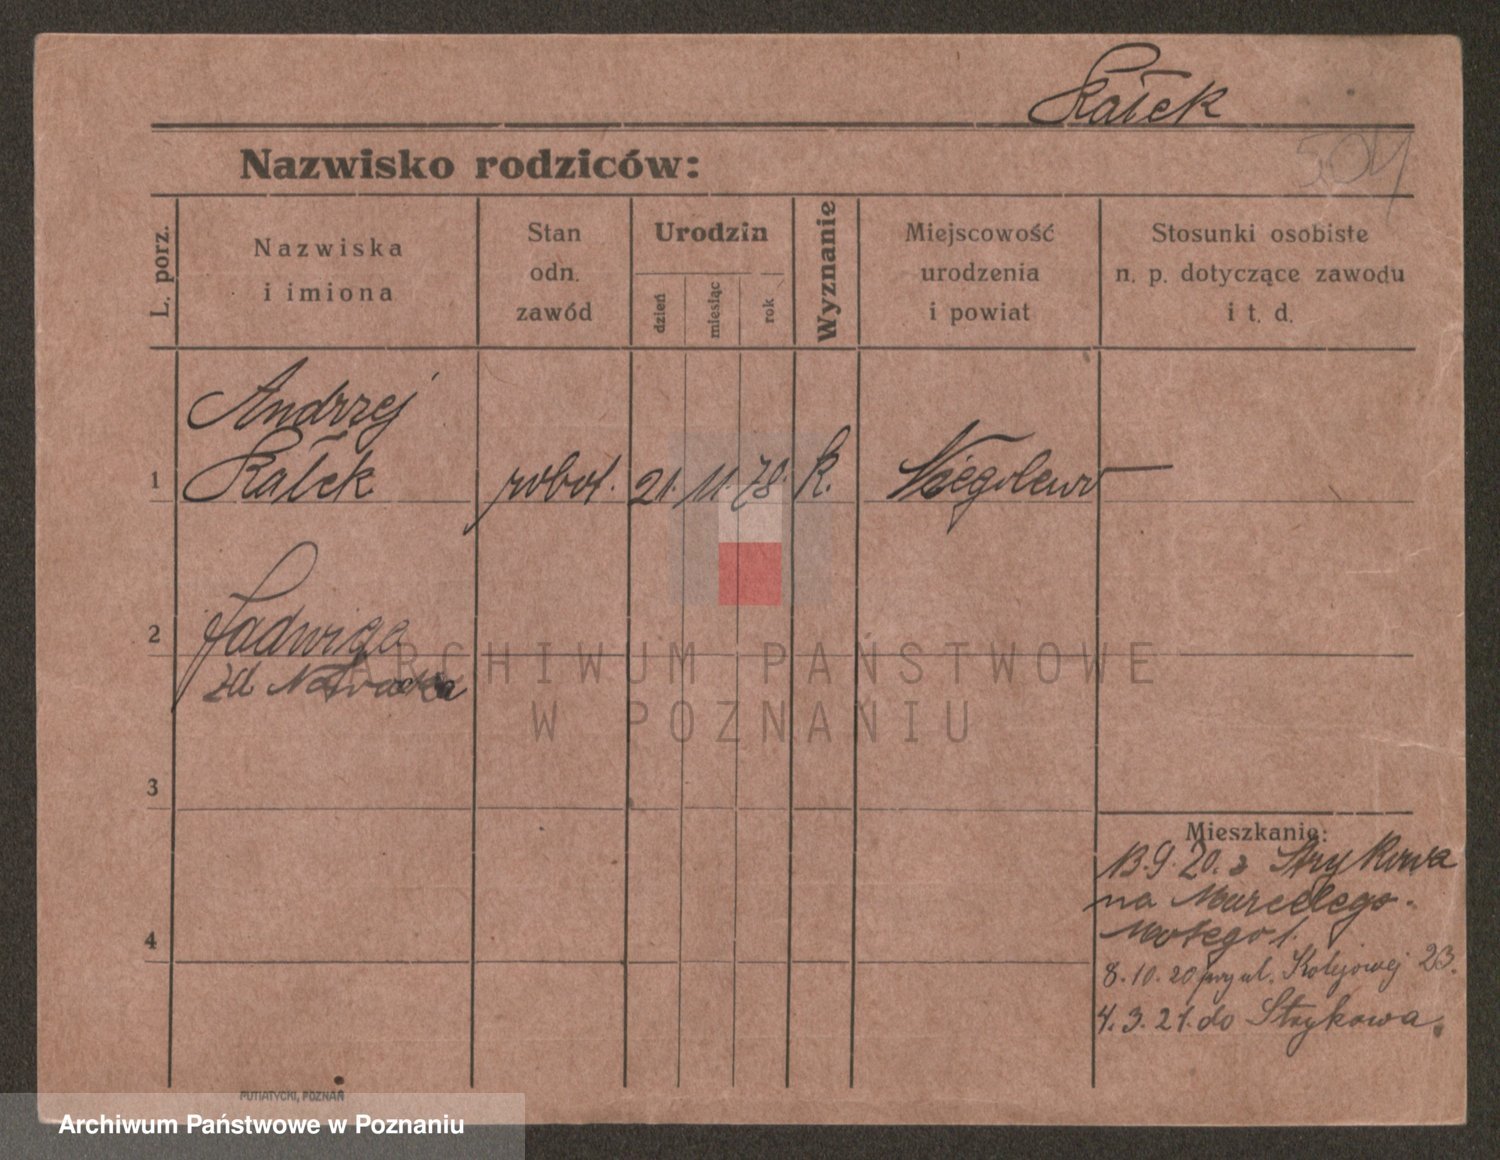 Kałek
504
Nazwisko rodziców:
L. porz.
Nazwiska
i imiona
Stan
odn.
zawód
Urodzin
dzień
miesiąc
rok
Wyznanie
Miejscowość
urodzenia
i powiat
Stosunki osobiste
n. p. dotyczące zawodu
i t. d.
Andrzej
1 Kałek robot. 21. 11. 78. k. Niegolewo
2 Jadwiga
3
4
Mieszkanie:
13.9.20. z Strykowa
na Marcelego-
1.
8.10.20 przy ul. Kolejowej 23.
4.3.21. do Strykowa.
PUTIATYCKI, POZNAŃ
ARCHIWUM PAŃSTWOWE
W POZNANIU
Archiwum Państwowe w Poznaniu